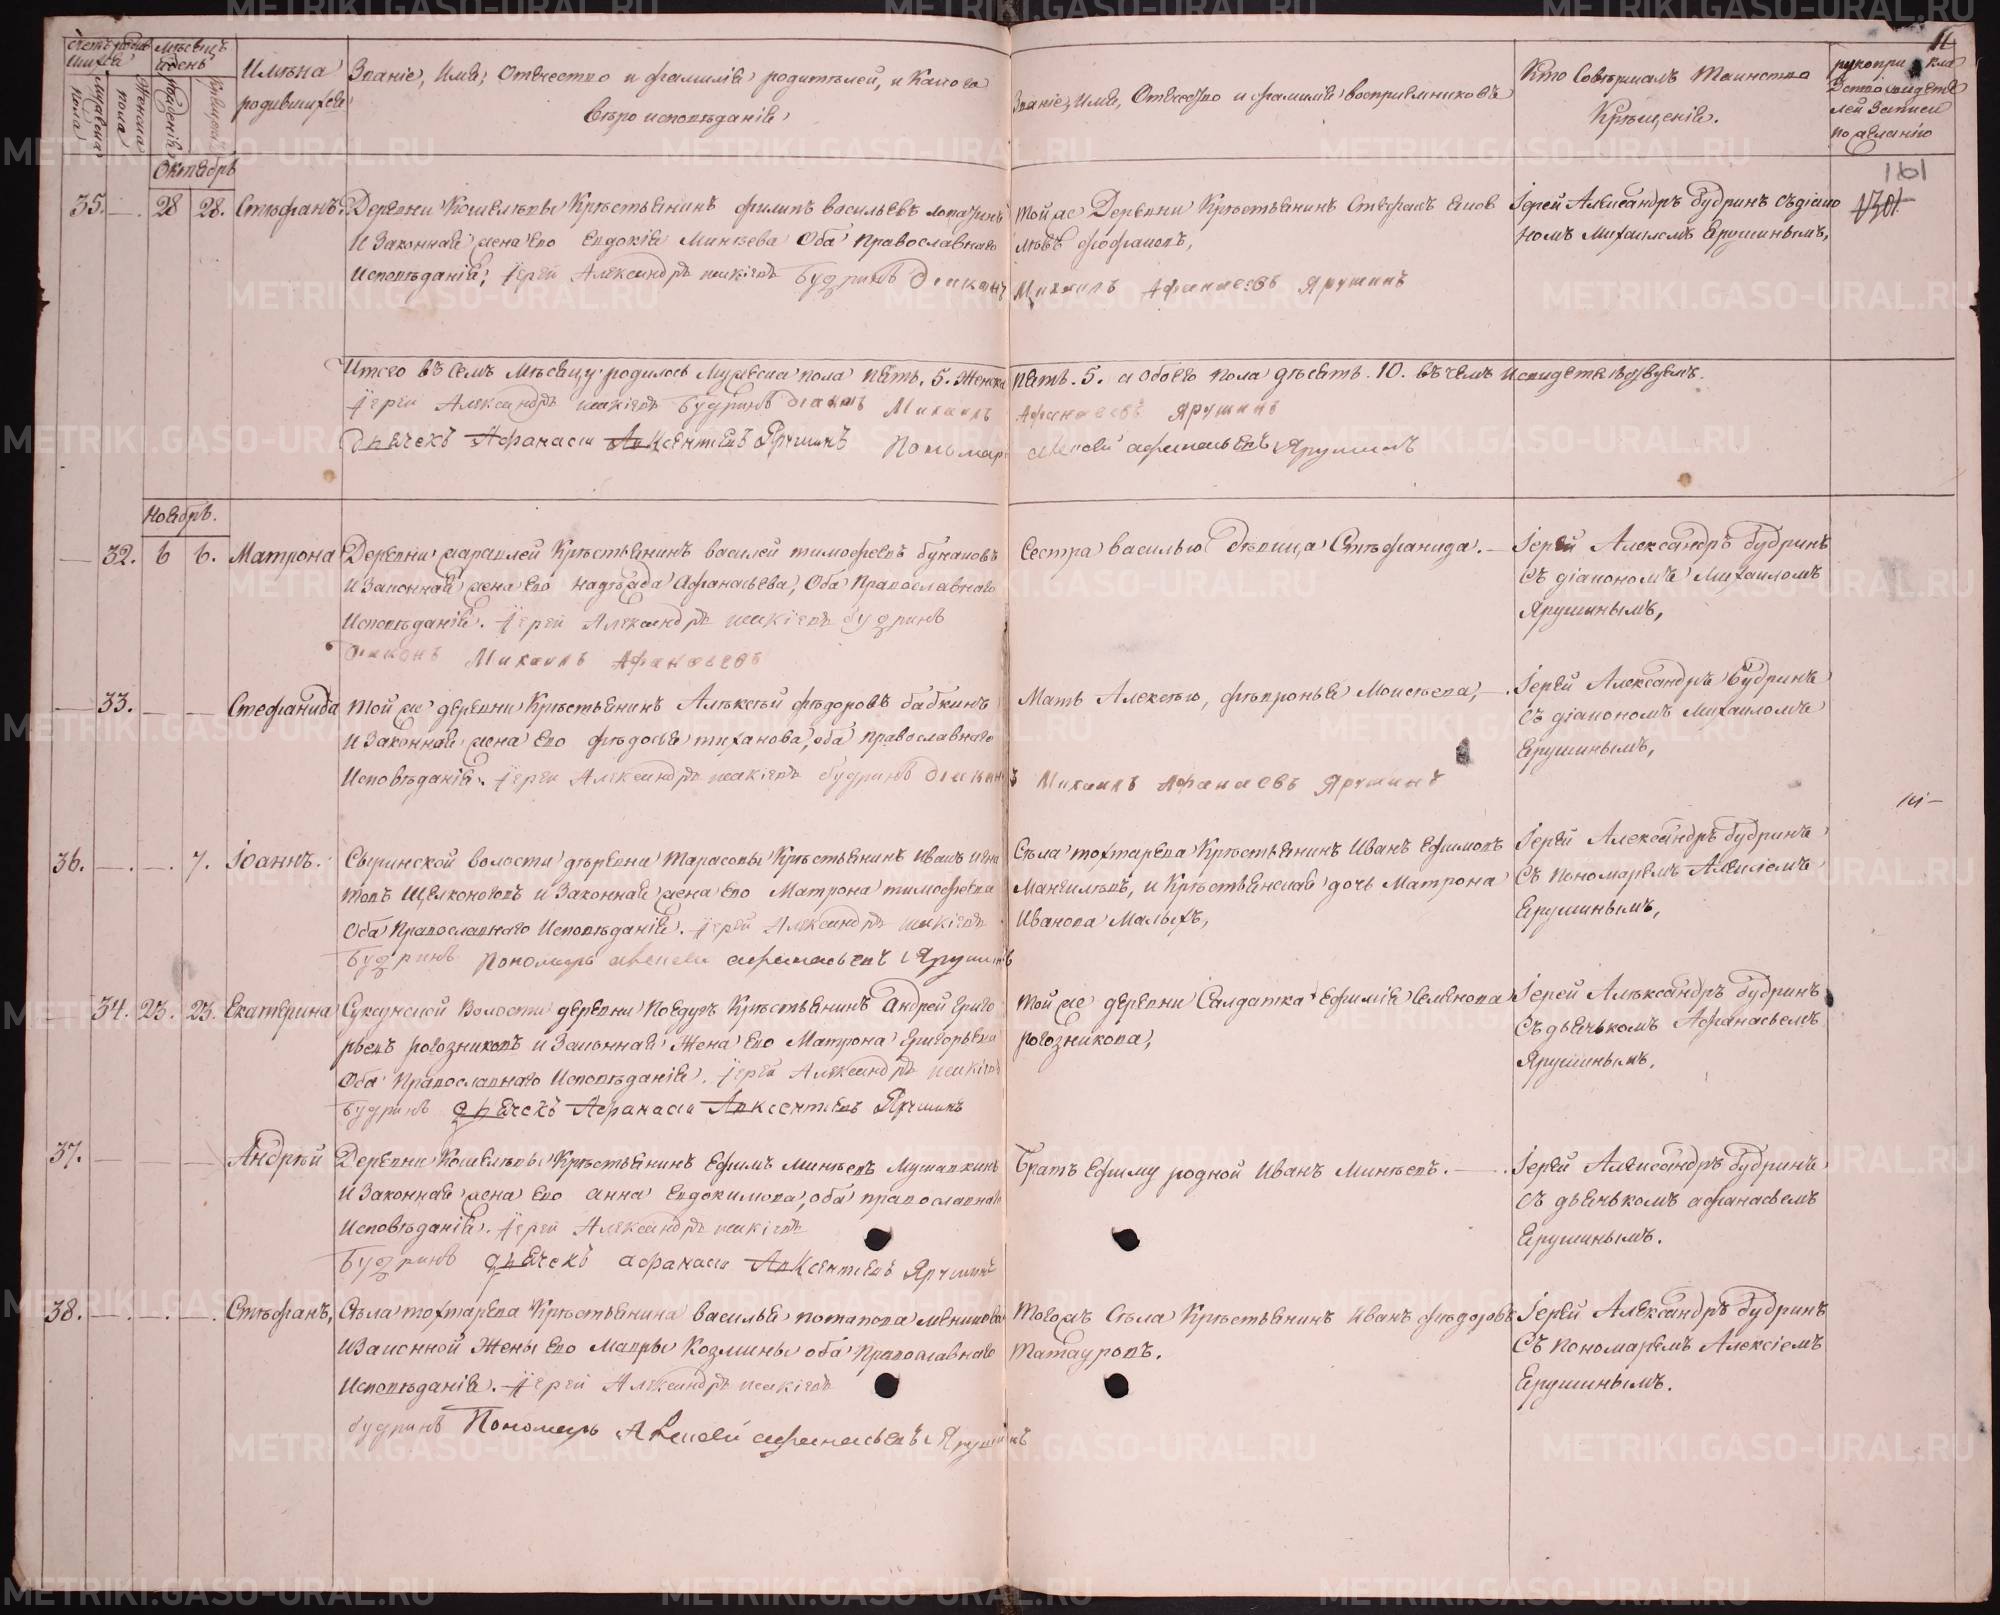 Счетъ родившихся
Мѣсяцъ и день
Мужеска пола
Женска пола
Рожденія
Крещенія
Имѣна родившихся
Званіе, Имя, Отечество и фамилія родителей, и какого вѣроисповѣданія
Званіе, Имя, Отечество и фамилія восприемниковъ
Кто Совѣршалъ Таинство Крѣщенія.
11
161
Октябрь
35. 28 28. Стѣфанъ.
Деревни Кошелѣвы Крѣстьянинъ Филипъ Васильевъ Лопатинъ
И Законная жена его Евдокія Минѣева Оба Православнаго
Исповѣданія; Іерей Александръ Іакіевъ Будринъ Діаконъ
Той же Деревни Крѣстьянинъ Стефанъ
Михаилъ Афанасевъ Ярушинъ
Іерей Александръ Будринъ Съ діакономъ Михаиломъ Ярушинымъ,
Итого въ Семъ Мѣсяцу родилось Мужеска пола Пять. 5. Женска
Пять. 5. а Обоего пола дѣсять. 10. въ чемъ И свидетельствуемъ.
Іерей Александръ Іакіевъ Будринъ діаконъ Михаилъ
Афанасевъ Ярушинъ
Дьячекъ Афанасіи Авксентіевъ Ярушинъ Пономарь
Алексеи Афанасьевъ Ярушинъ
Ноябрь.
32. 6 6. Матрона
Деревни Журавлей Крѣстьянинъ Василей Тимофеевъ
И Законная жена его Надѣжда Афанасьева, Оба Православнаго
Исповѣданія. Іерей Александръ Іакіевъ Будринъ
Діаконъ Михаилъ Афанасевъ
Сестра Василью дѣвица Стѣфанида.
Іерей Александръ Будринъ
Съ діакономъ Михаиломъ
Ярушинымъ,
33. Стефанида
Той же деревни Крѣстьянинъ Алѣксѣй Фѣдоровъ Бабкинъ
И Законная жена Его Фѣдосья Тиханова, оба православнаго
Исповѣданія. Іерей Александръ Іакіевъ Будринъ Діаконъ
Мать Алексѣю, Фѣвронья Моисѣева,
Михаилъ Афанасевъ Ярушинъ
Іерей Александръ Будринъ
Съ діакономъ Михаиломъ
Ярушинымъ,
36. 7. Іоаннъ.
волости дѣревни Тарасовы Крѣстьянинъ Иванъ Игна
товъ Щелконоговъ и Законная жена его Матрона Тимофѣева
Оба Православнаго Исповѣданія. Іерей Александръ Іакіевъ
Будринъ Пономарь Алексеи Афанасьевъ Ярушинъ
Сѣла Тохтарева Крѣстьянинъ Иванъ Ефимовъ
и Крѣстьянская дочь Матрона
Иванова Малыхъ,
Іерей Александръ Будринъ
Съ Пономаремъ Алексіемъ
Ярушинымъ,
34. 23. 23. Екатерина
Суксунской Волости деревни Поедугъ Крѣстьянинъ Андрей Григо
рьевъ Рогозниковъ и Законная Жена Его Матрона Григорьева
Оба Православнаго Исповѣданія. Іерей Александръ Іакіевъ
Будринъ дьячекъ Афанасіи Авксентіевъ Ярушинъ
Той же деревни Салдатка Ефимія Семенова
Рогозникова,
Іерей Алѣксандръ Будринъ
Съ дьячькомъ Афанасьемъ
Ярушинымъ.
37. Андрѣй
Деревни Кошелѣвы Крѣстьянинъ Ефимъ Минѣевъ
И Законная жена Его Анна Евдокимова, оба православнаго
Исповѣданія. Іерей Александръ Іакіевъ
Будринъ дьячекъ Афанасіи Авксентіевъ Ярушинъ
Братъ Ефиму родной Иванъ Минѣевъ.
Іерей Александръ Будринъ
Съ дьячькомъ Афанасьемъ
Ярушинымъ.
38. Стѣфанъ,
Сѣла Тохтарева Крѣстьянина Василья Потапова
И Законной Жены Его Мавры Козмины оба Православнаго
Исповѣданія. Іерей Александръ Іакіевъ
Будринъ Пономарь Алексеи Афанасьевъ Ярушинъ
Тогожъ Сѣла Крѣстьянинъ Иванъ Фѣдоровъ
Татауровъ.
Іерей Александръ Будринъ
Съ Пономаремъ Алексіемъ
Ярушинымъ.
METRIKI.GASO-URAL.RU